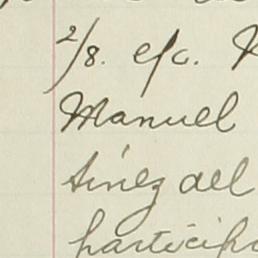 2/8. e/c.
Manuel
tínez del
particip